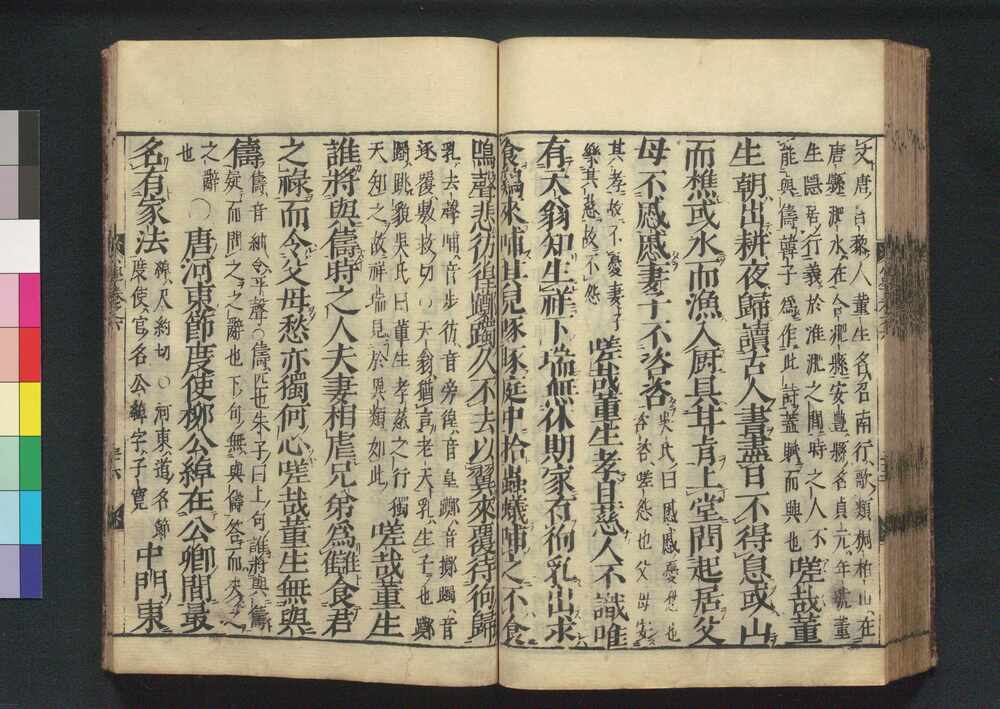 文唐昌黎人董生名召南行歌類桐柏山在
唐縣淝水在合淝縣安豊縣名貞元年號董
生隱居行義於淮淝之間時之人不
能與儔韓子爲作此詩蓋賦而興也
嗟哉董
生朝出耕夜歸讀古人書盡日不得息或山
而樵或水而漁入厨具甘旨上堂問起居父
母不慼慼妻子不咨咨
吳氏曰慼慼憂愁也
咨咨嗟怨也父母安
其孝故不憂妻子
樂其慈故不怨
嗟哉董生孝且慈人不識唯
有天翁知生祥下瑞無休期家有狗乳出求
食雞來哺其兒啄啄庭中拾蟲蟻哺之不食
鳴聲悲彷徨躑躅久不去以翼來覆待狗歸
乳去聲哺音步彷音旁徨音皇躑音擲躅音
逐覆敷救切○天翁猶言老天乳生子也躑
躅跳貌吳氏曰董生孝慈之行獨
天知之故祥瑞見於異類如此
嗟哉董生
誰將與儔時之人夫妻相虐兄弟爲讎食君
之祿而令父母愁亦獨何心嗟哉董生無與
儔
儔音紬令平聲○儔匹也朱子曰上句誰將與儔
疑而問之之辭也下句無與儔答而決之
之辭
也
○唐河東節度使柳公綽在公卿間最
名有家法
綽尺約切○河東道名節
度使官名公綽字子寬
中門東